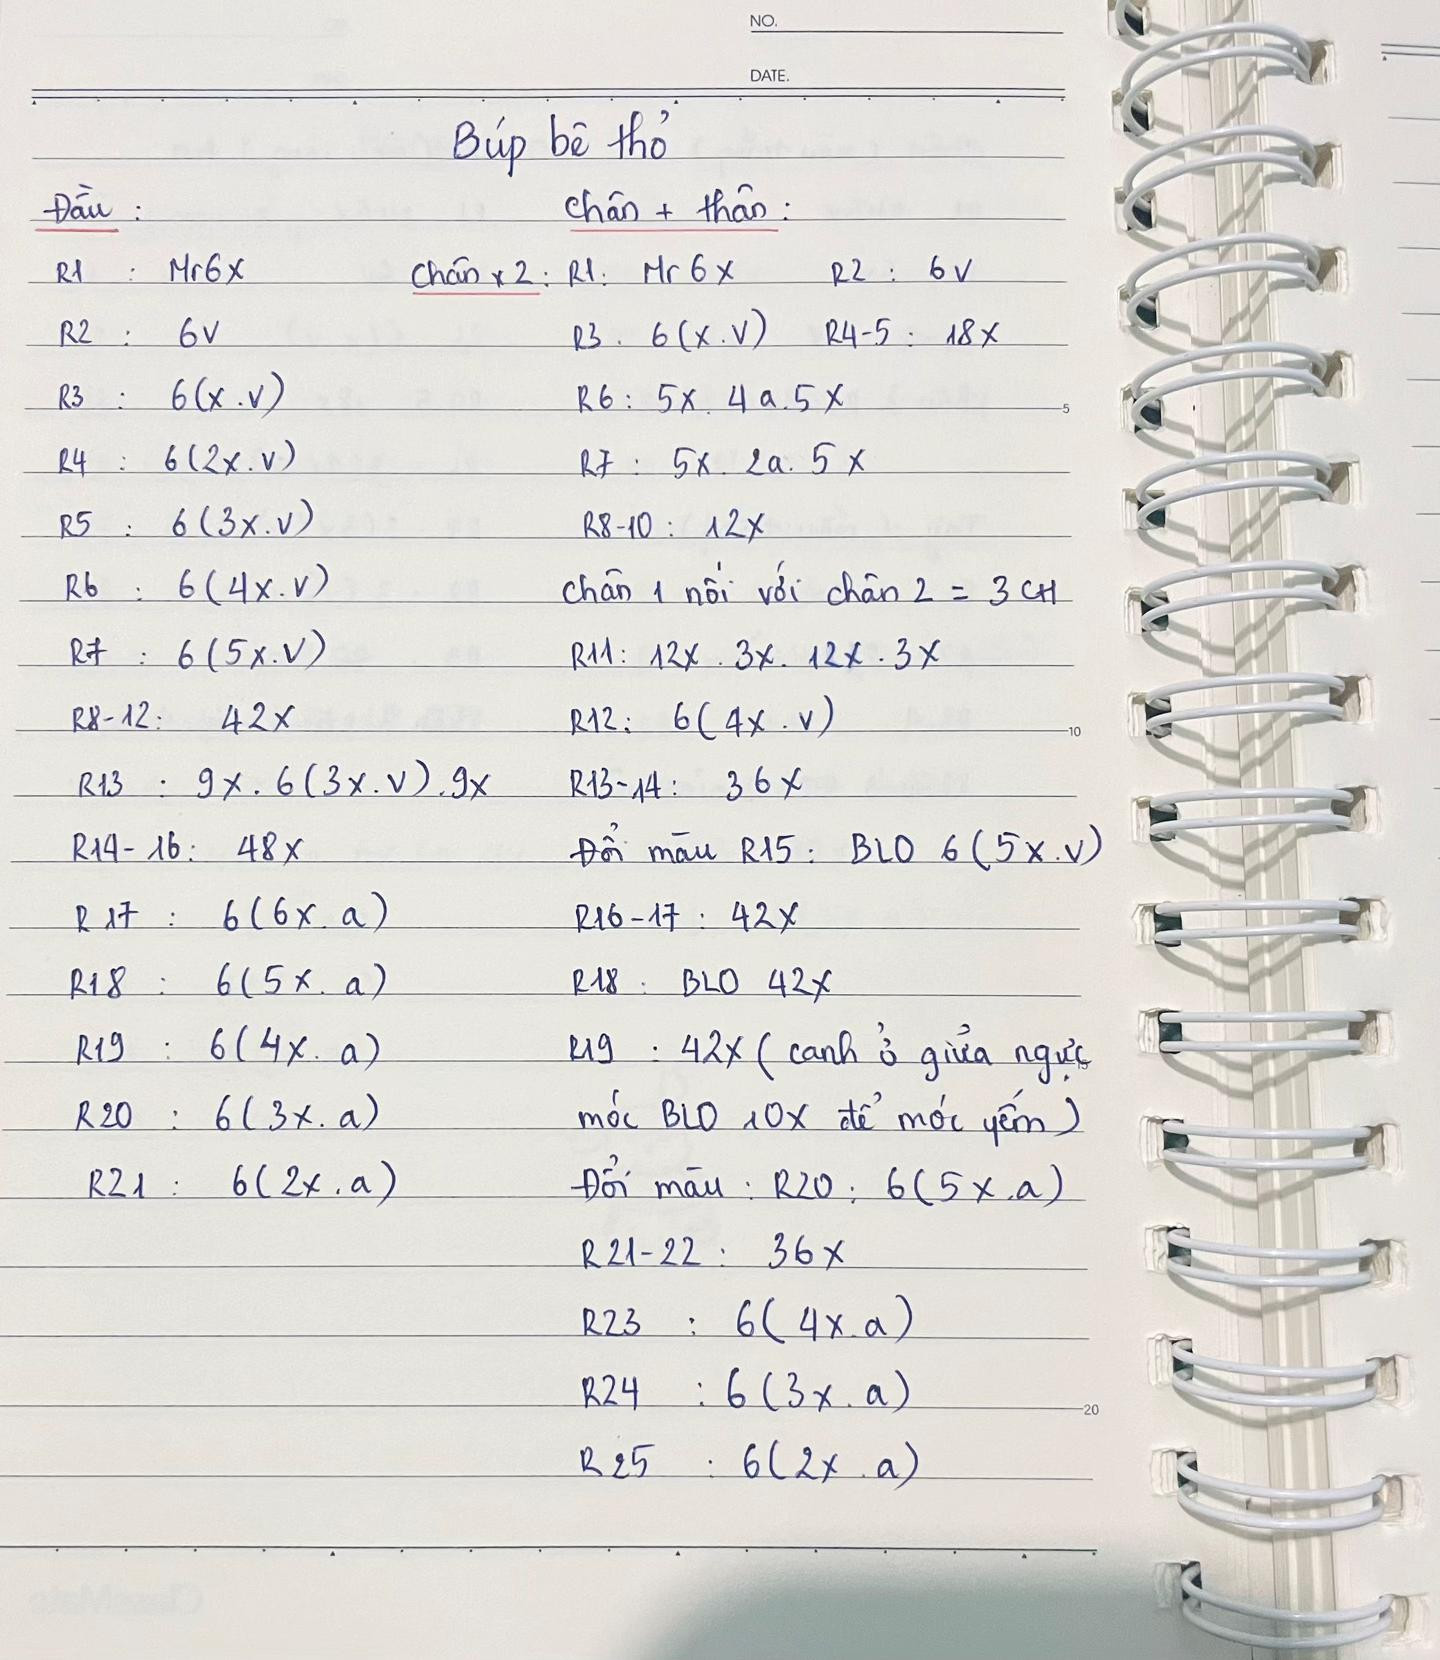 NO.
DATE.
Búp bê thỏ
Đầu :
R1 : Mr6x
R2 : 6v
R3 : 6(x.v)
R4 : 6(2x.v)
R5 : 6(3x.v)
R6 : 6(4x.v)
R7 : 6(5x.v)
R8-12: 42x
R13 : 9x.6(3x.v).9x
R14-16: 48x
R17 : 6(6x.a)
R18 : 6(5x.a)
R19 : 6(4x.a)
R20 : 6(3x.a)
R21 : 6(2x.a)
Chân + thân :
Chân x 2 : R1: Mr 6x R2 : 6v
R3 . 6(x.v) R4-5 : 18x
R6 : 5x. 4a.5x
R7 : 5x. 2a. 5x
R8-10 : 12x
Chân 1 nối với chân 2 = 3 CH
R11: 12x . 3x. 12x . 3x
R12: 6(4x.v)
R13-14: 36x
Đổi màu R15: BLO 6(5x.v)
R16-17 : 42x
R18 : BLO 42x
R19 : 42x (canh ở giữa ngực
móc BLO 10x để móc yếm)
Đổi màu : R20 : 6(5x.a)
R21-22 : 36x
R23 : 6(4x.a)
R24 : 6(3x.a)
R25 : 6(2x.a)
5
10
15
20